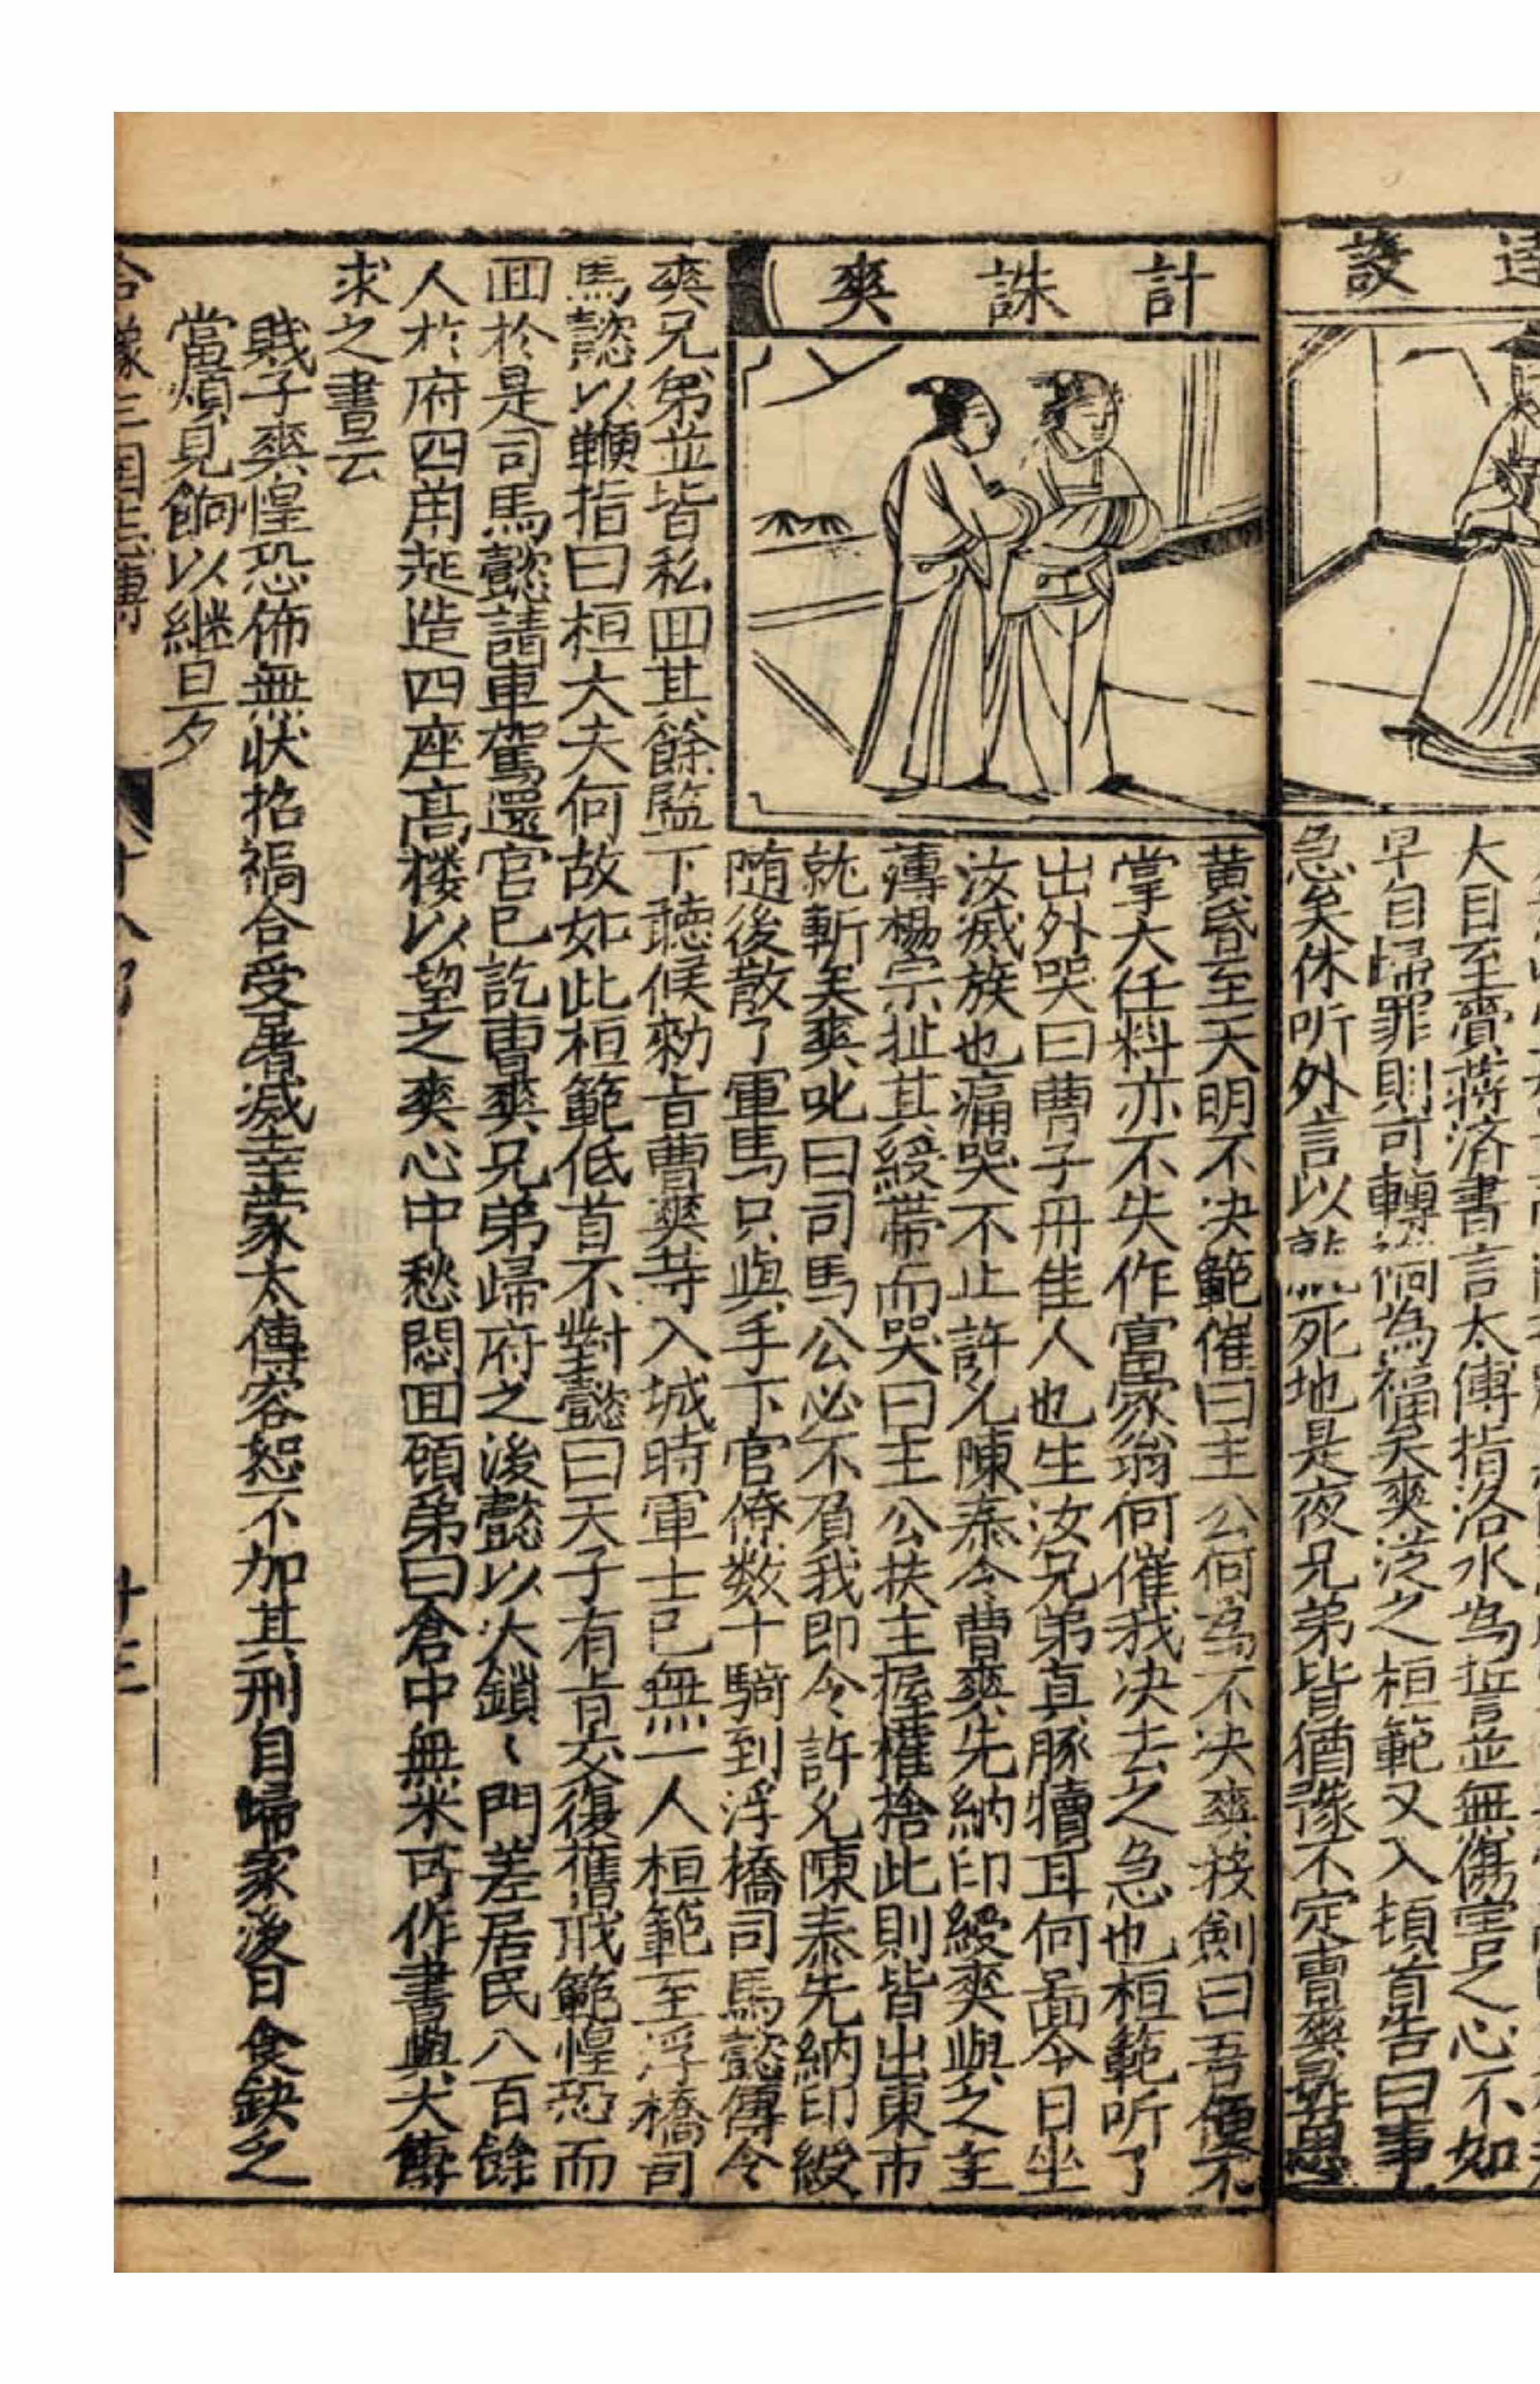 逵設
大目至賷蔣済書言太傅指洛水為誓並無傷害之心不如
早自㱕罪則可轉禍為福矣爽泛之桓範又入頓首告曰事
急矣休听外言以就死地是夜兄弟皆猶豫不定曹爽尋思
計誅爽
黄昏至天明不决範催曰主公何為不决爽按劍曰吾便不
掌大任料亦不失作富家翁何催我决去之急也桓範听了
出外哭曰曹子丹佳人也生汝兄弟真豚犢耳何啚今日坐
汝滅族也痛哭不止許允陳泰令曹爽先納印綬爽與之主
薄楊宗扯其綬帶而哭曰主公扶主握權捨此則皆出東市
就斬矣爽叱曰司馬公必不負我即令許允陳泰先納印綬
随後散了軍馬只與手下官僚数十騎到浮橋司馬懿傳令
爽兄弟並皆私囬其餘監下聴候勑旨曹爽等入城時軍士已無一人桓範至浮橋司
馬懿以鞭指曰桓大夫何故如此桓範低首不對懿曰天子有旨交復舊戒範惶恐而
囬於是司馬懿請車駕還官已訖曹爽兄弟㱕府之後懿以大鎖〻門差居民八百餘
人於府四角起造四座高楼以望之爽心中愁悶囬頋弟曰倉中無米可作書與大傅
求之書云
賎子爽惶恐佈無状招禍合受屠滅幸蒙太傅容恕不加其刑自㱕家後日食鈌乏
當煩見餉以継旦夕
合像三国志傳 十八 十三